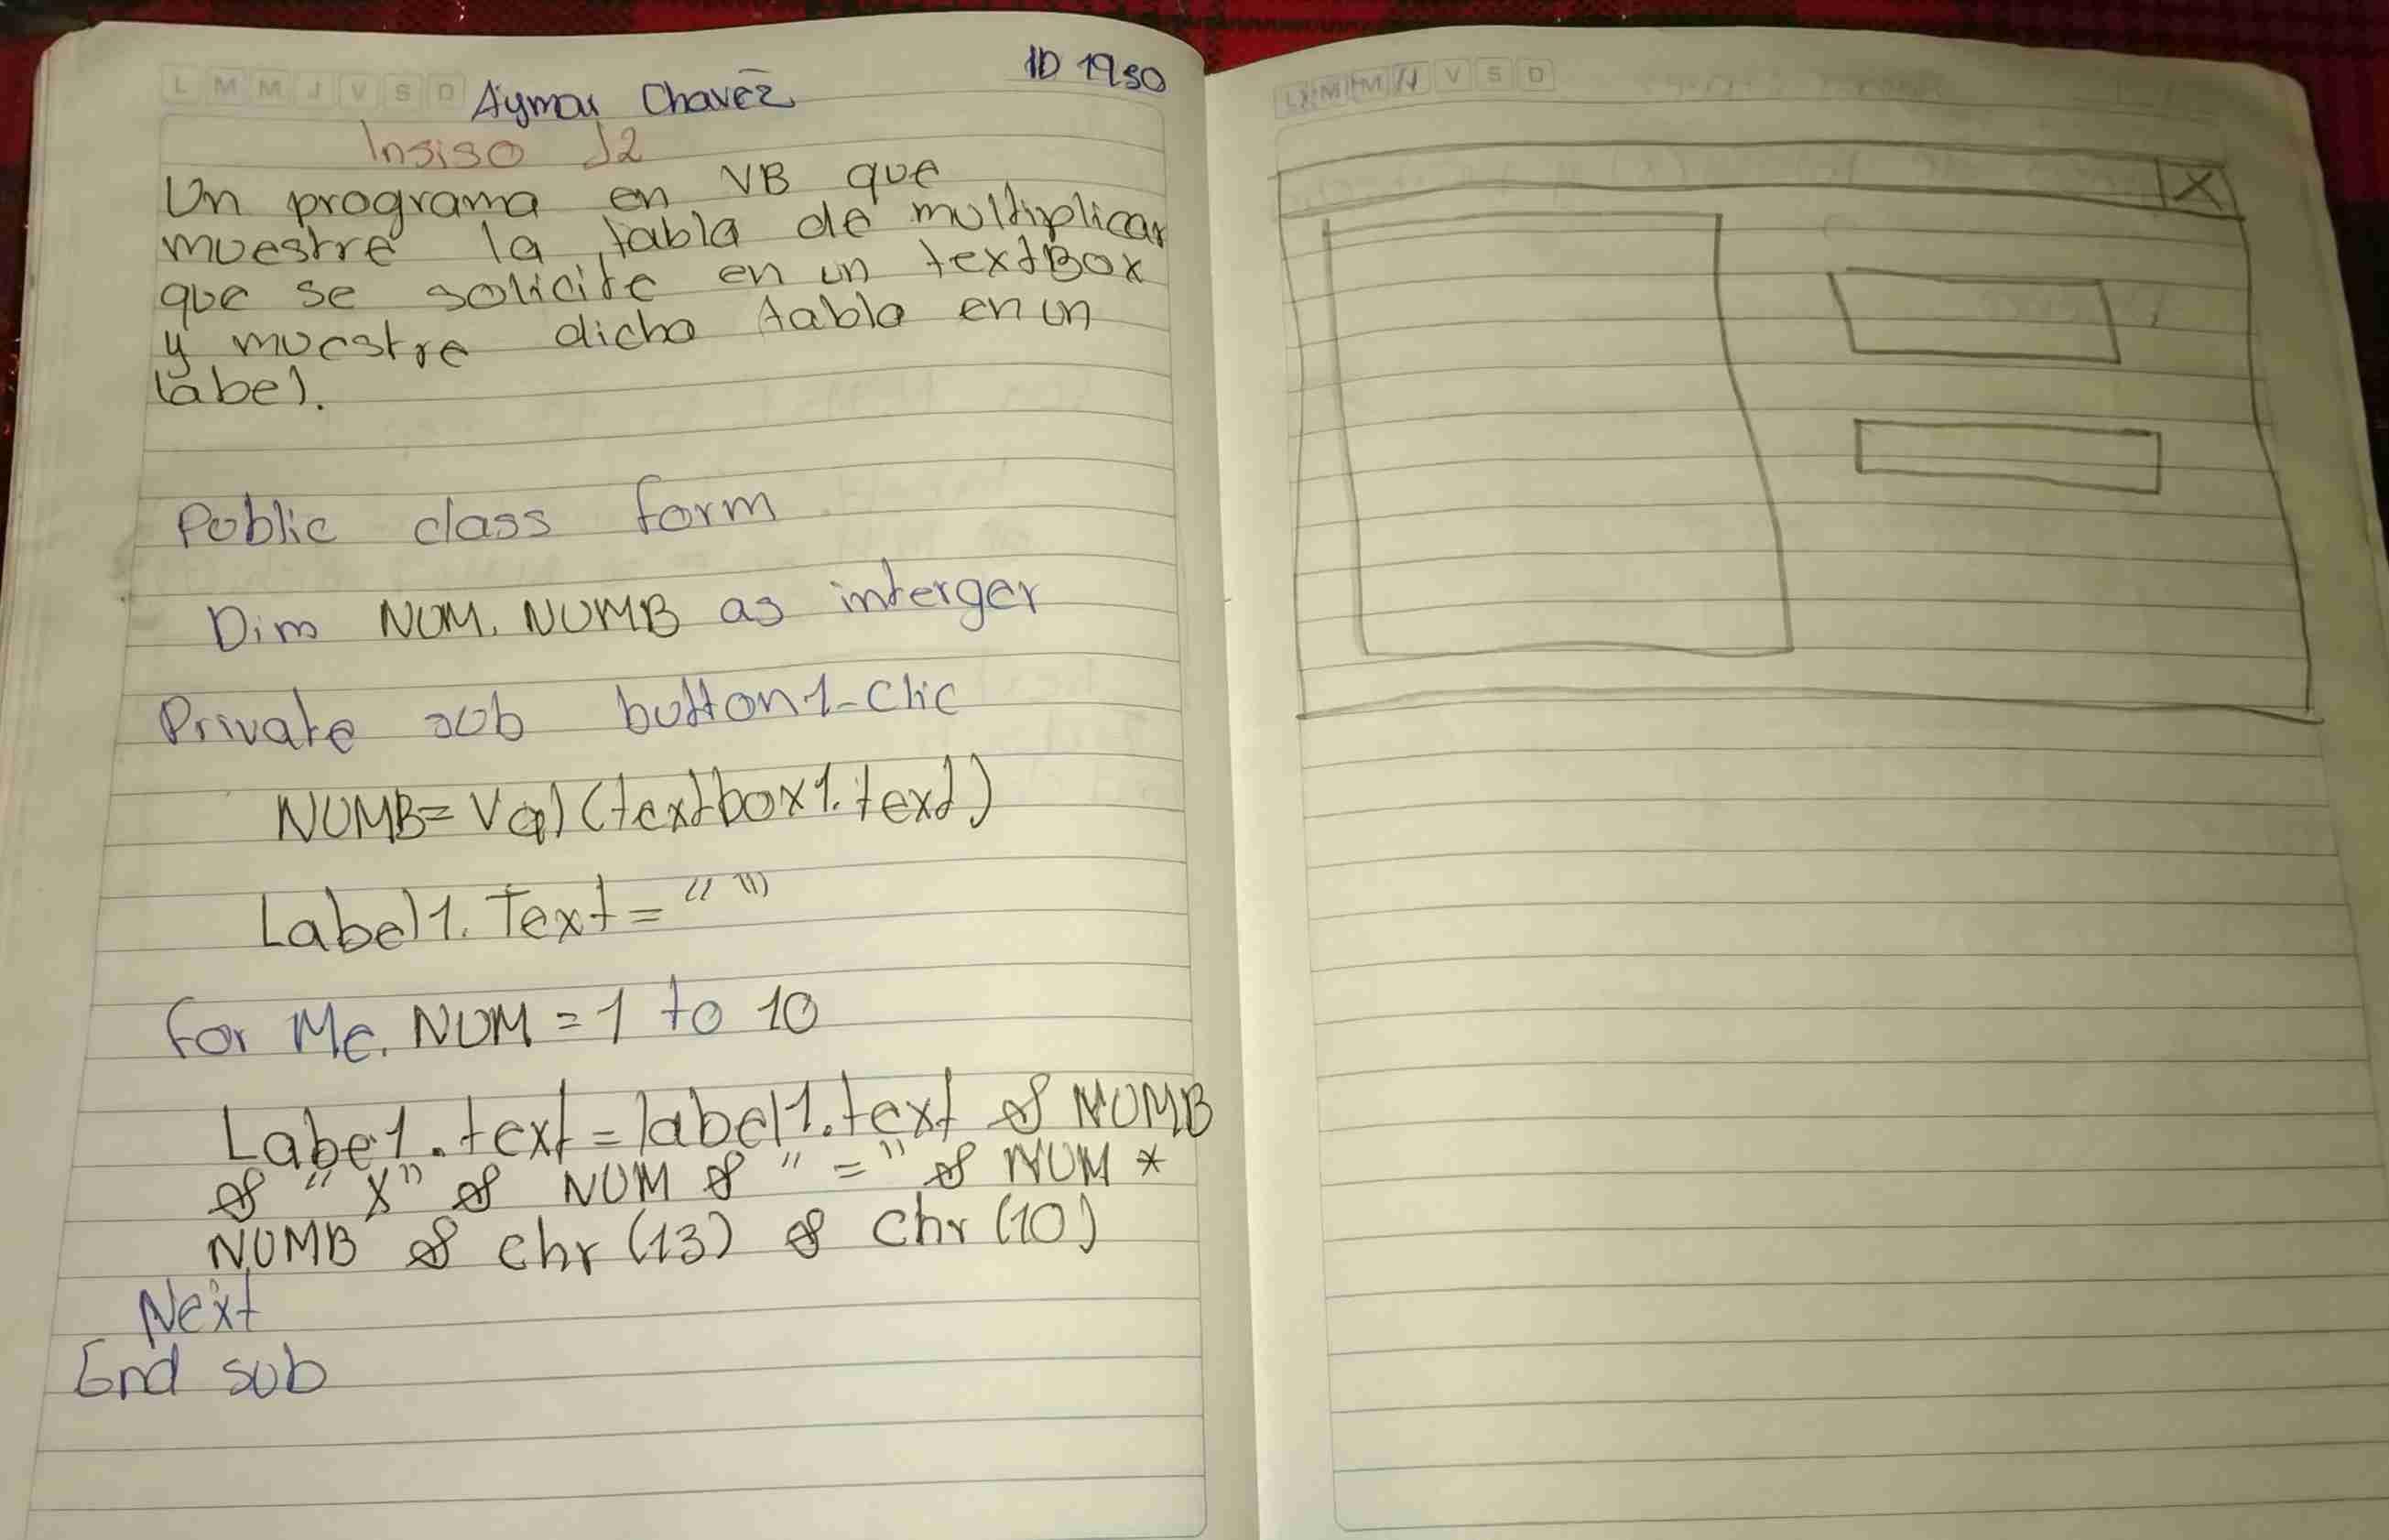 L M M J V S D
Aymar Chavez
ID 1950
Insiso J2
Un programa en VB que
muestre la tabla de multiplicar
que se solicite en un textBox
y muestre dicha tabla en un
label.
Public class form
Dim NUM, NUMB as interger
Private sub button1-Clic
NUMB= Val (textbox1.text)
Label1. Text = “ ”
for Me. NUM = 1 to 10
Labe1.text = label1.text & NUMB
& “ X” & NUM & " = " & NUM *
NUMB & chr (13) & Chr (10)
Next
End sub
L M M J V S D
X